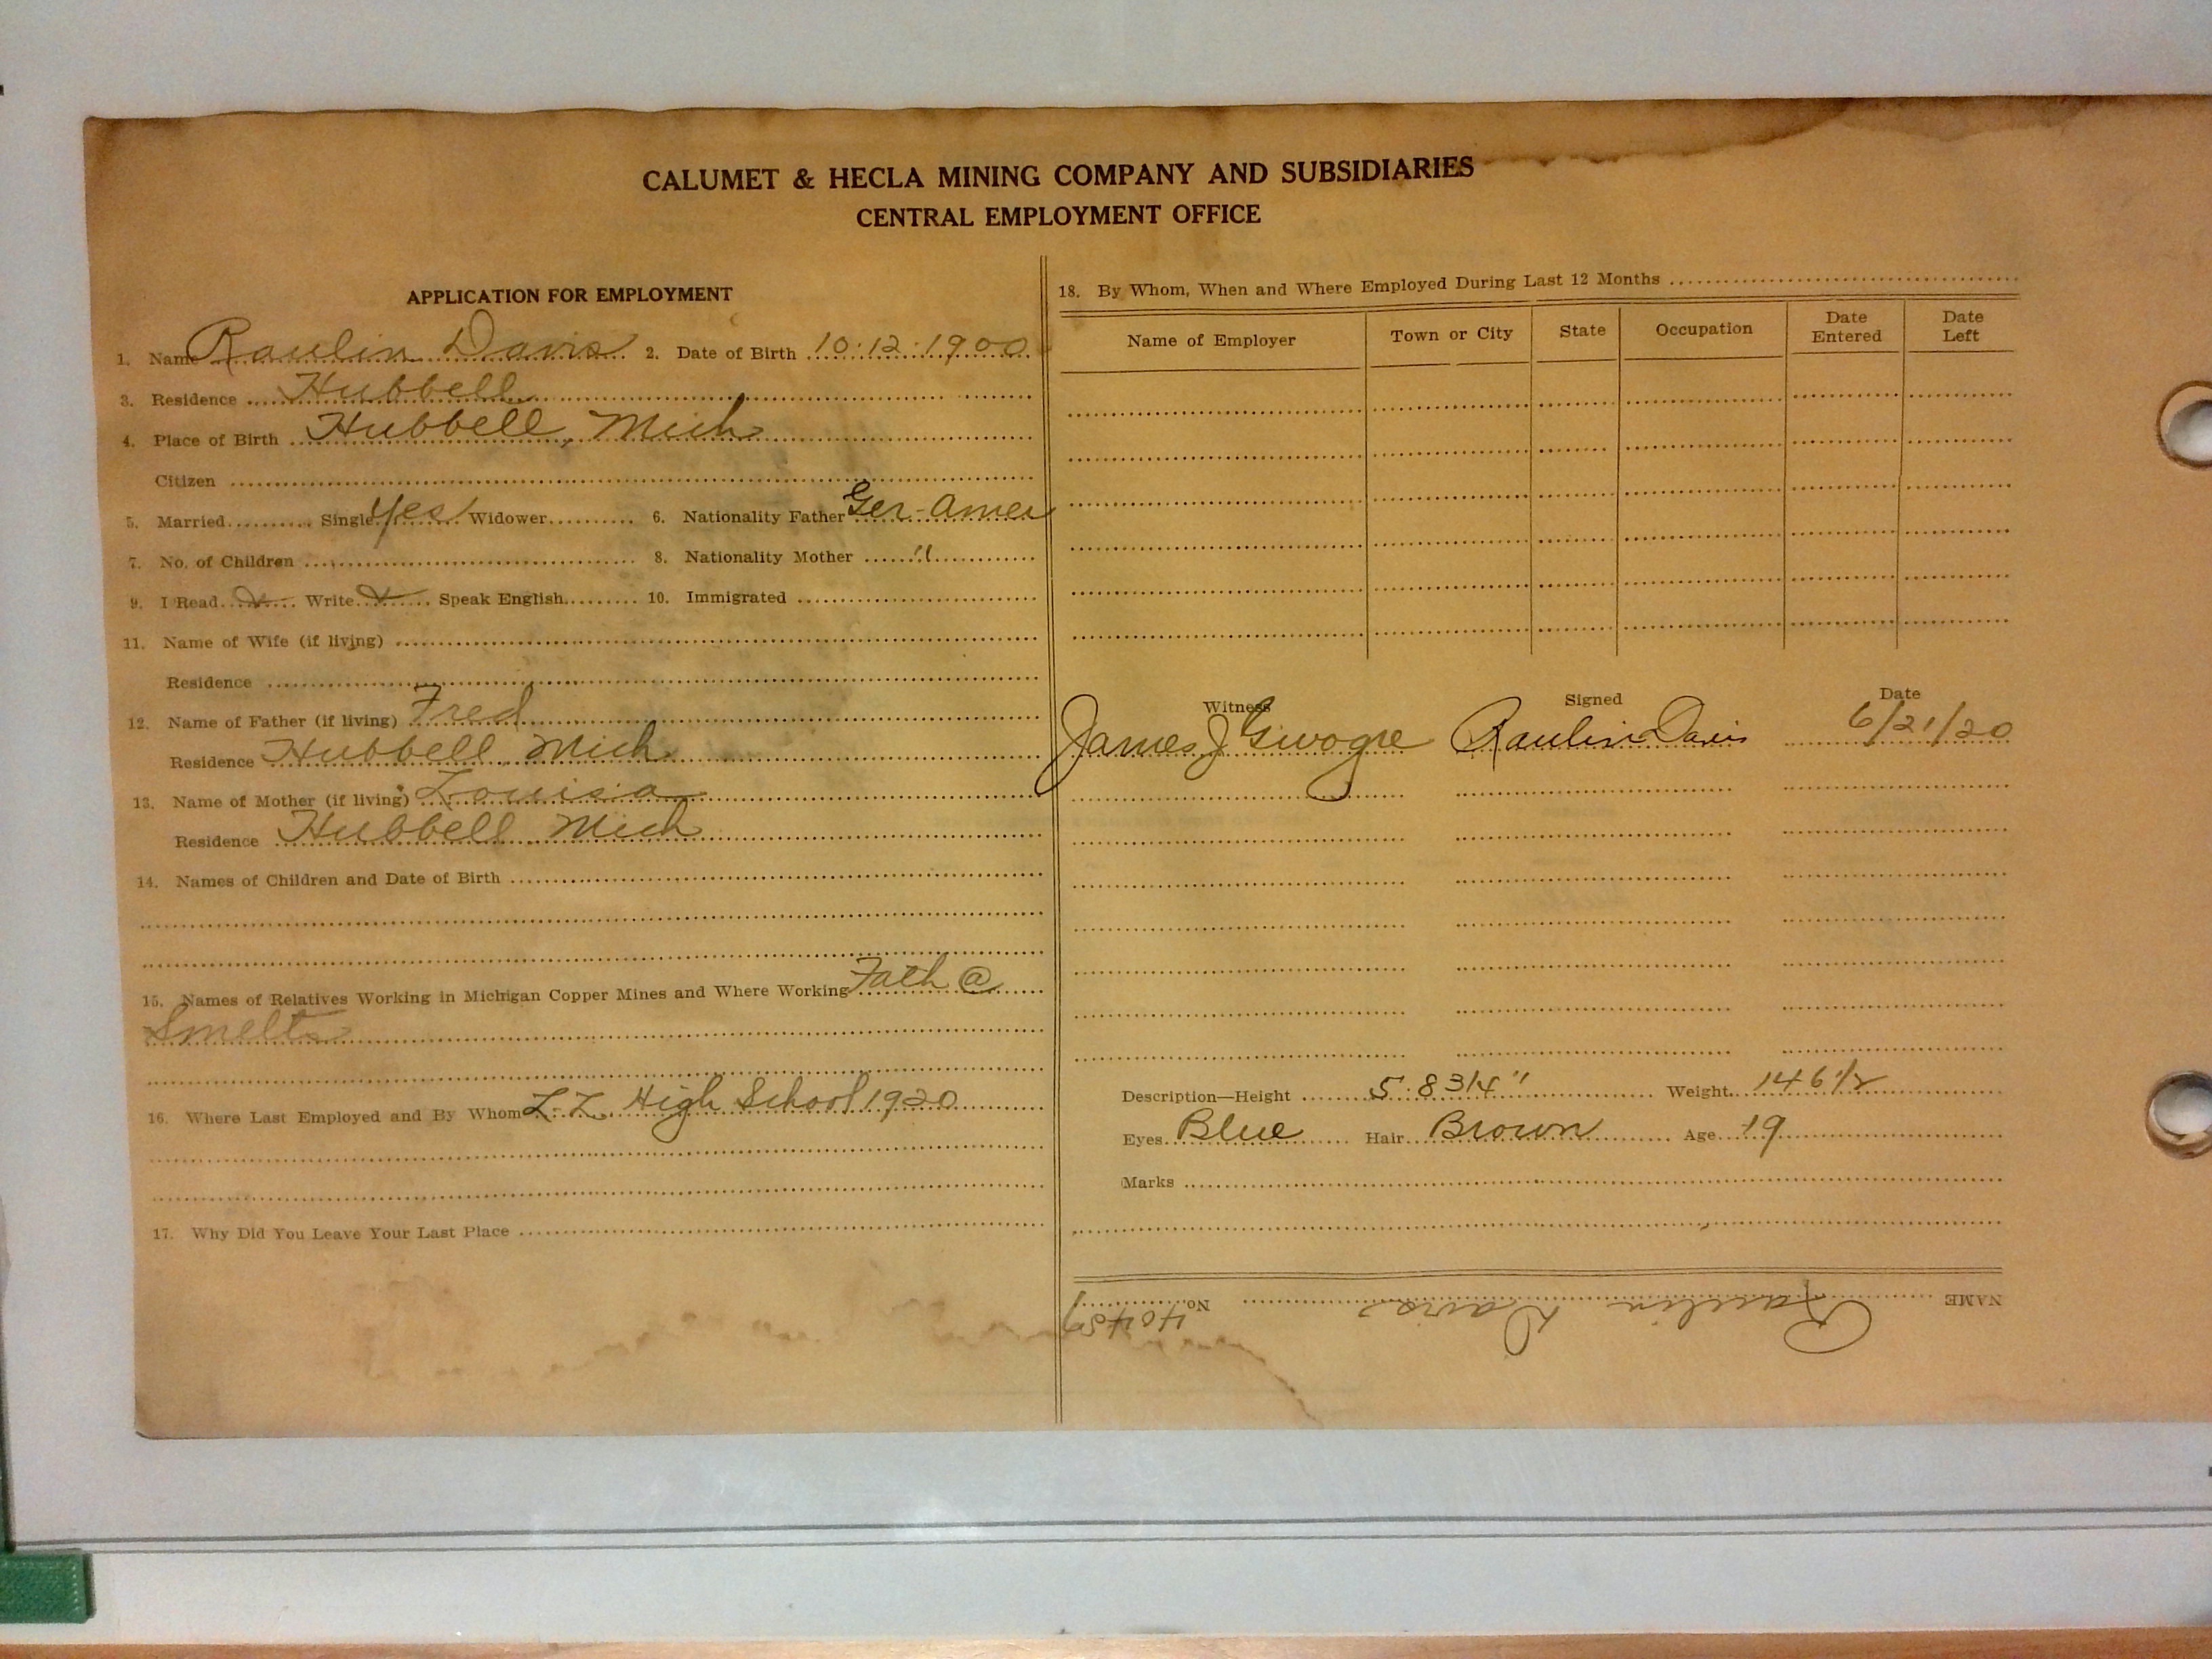 CALUMET & HECLA MINING COMPANY AND SUBSIDIARIES
CENTRAL EMPLOYMENT OFFICE
APPLICATION FOR EMPLOYMENT
1. Name Raulin Davis 2. Date of Birth 10-12-1900
3. Residence Hubbell
4. Place of Birth Hubbell, Mich
Citizen
5. Married Single Yes Widower 6. Nationality Father Ger-Amer
7. No. of Children 8. Nationality Mother "
9. I Read X Write X Speak English 10. Immigrated
11. Name of Wife (if living)
Residence
12. Name of Father (if living) Fred
Residence Hubbell, Mich
13. Name of Mother (if living) Louisa
Residence Hubbell Mich
14. Names of Children and Date of Birth
15. Names of Relatives Working in Michigan Copper Mines and Where Working Fath @
Smelts
16. Where Last Employed and By Whom L. L. High School 1920
17. Why Did You Leave Your Last Place
18. By Whom, When and Where Employed During Last 12 Months
Name of Employer Town or City State Occupation Date Entered Date Left
Witness Signed Date
James J Raulin Davis 6/21/20
Description—Height 5 8 3/4" Weight 146 1/2
Eyes Blue Hair Brown Age 19
Marks
NAME Raulin Davis No. 40459